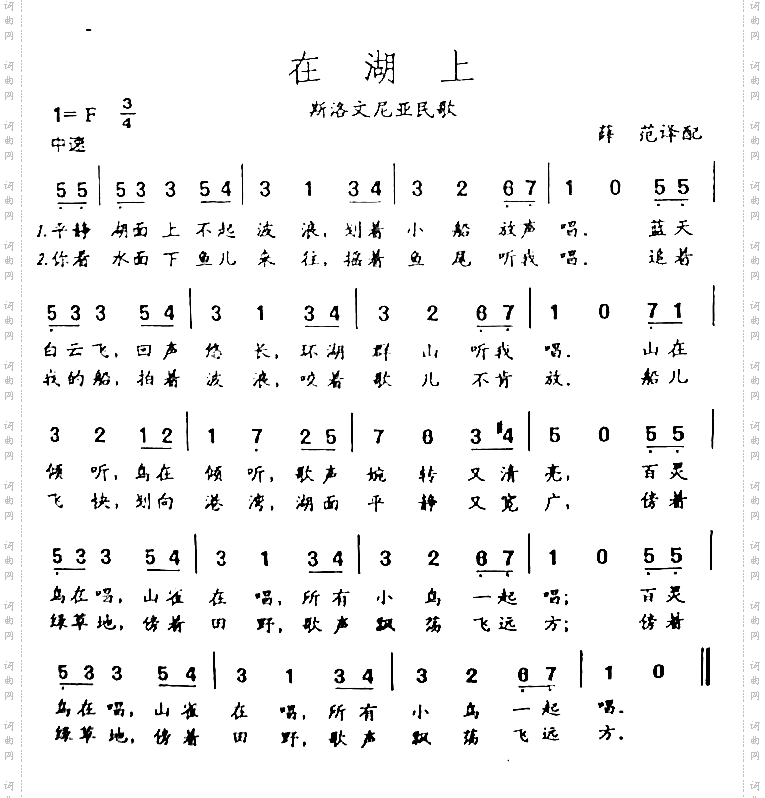 在湖上
斯洛文尼亚民歌
1=F 3/4
薛 范译配
中速
5 5 | 5 3 3 5 4 | 3 1 3 4 | 3 2 6 7 | 1 0 5 5 |
1.平静 湖面上 不起 波 浪,划着 小 船 放声 唱. 蓝天
2.你看 水面下 鱼儿 来 往,摇着 鱼 尾 听我 唱. 追着
5 3 3 5 4 | 3 1 3 4 | 3 2 6 7 | 1 0 7 1 |
白云飞,回声 悠 长,环湖 群 山 听我 唱. 山在
我的船,拍着 波 浪,咬着 歌 儿 不肯 放. 船儿
3 2 1 2 | 1 7 2 5 | 7 6 3 #4 | 5 0 5 5 |
倾 听,鸟在 倾 听,歌声 婉 转 又清 亮, 百灵
飞 快,划向 港 湾,湖面 平 静 又宽 广, 傍着
5 3 3 5 4 | 3 1 3 4 | 3 2 6 7 | 1 0 5 5 |
鸟在唱,山雀 在 唱,所有 小 鸟 一起 唱; 百灵
绿草地,傍着 田 野,歌声 飘 荡 飞远 方; 傍着
5 3 3 5 4 | 3 1 3 4 | 3 2 6 7 | 1 0 ‖
鸟在唱,山雀 在 唱,所有 小 鸟 一起 唱.
绿草地,傍着 田 野,歌声 飘 荡 飞远 方.
词曲网